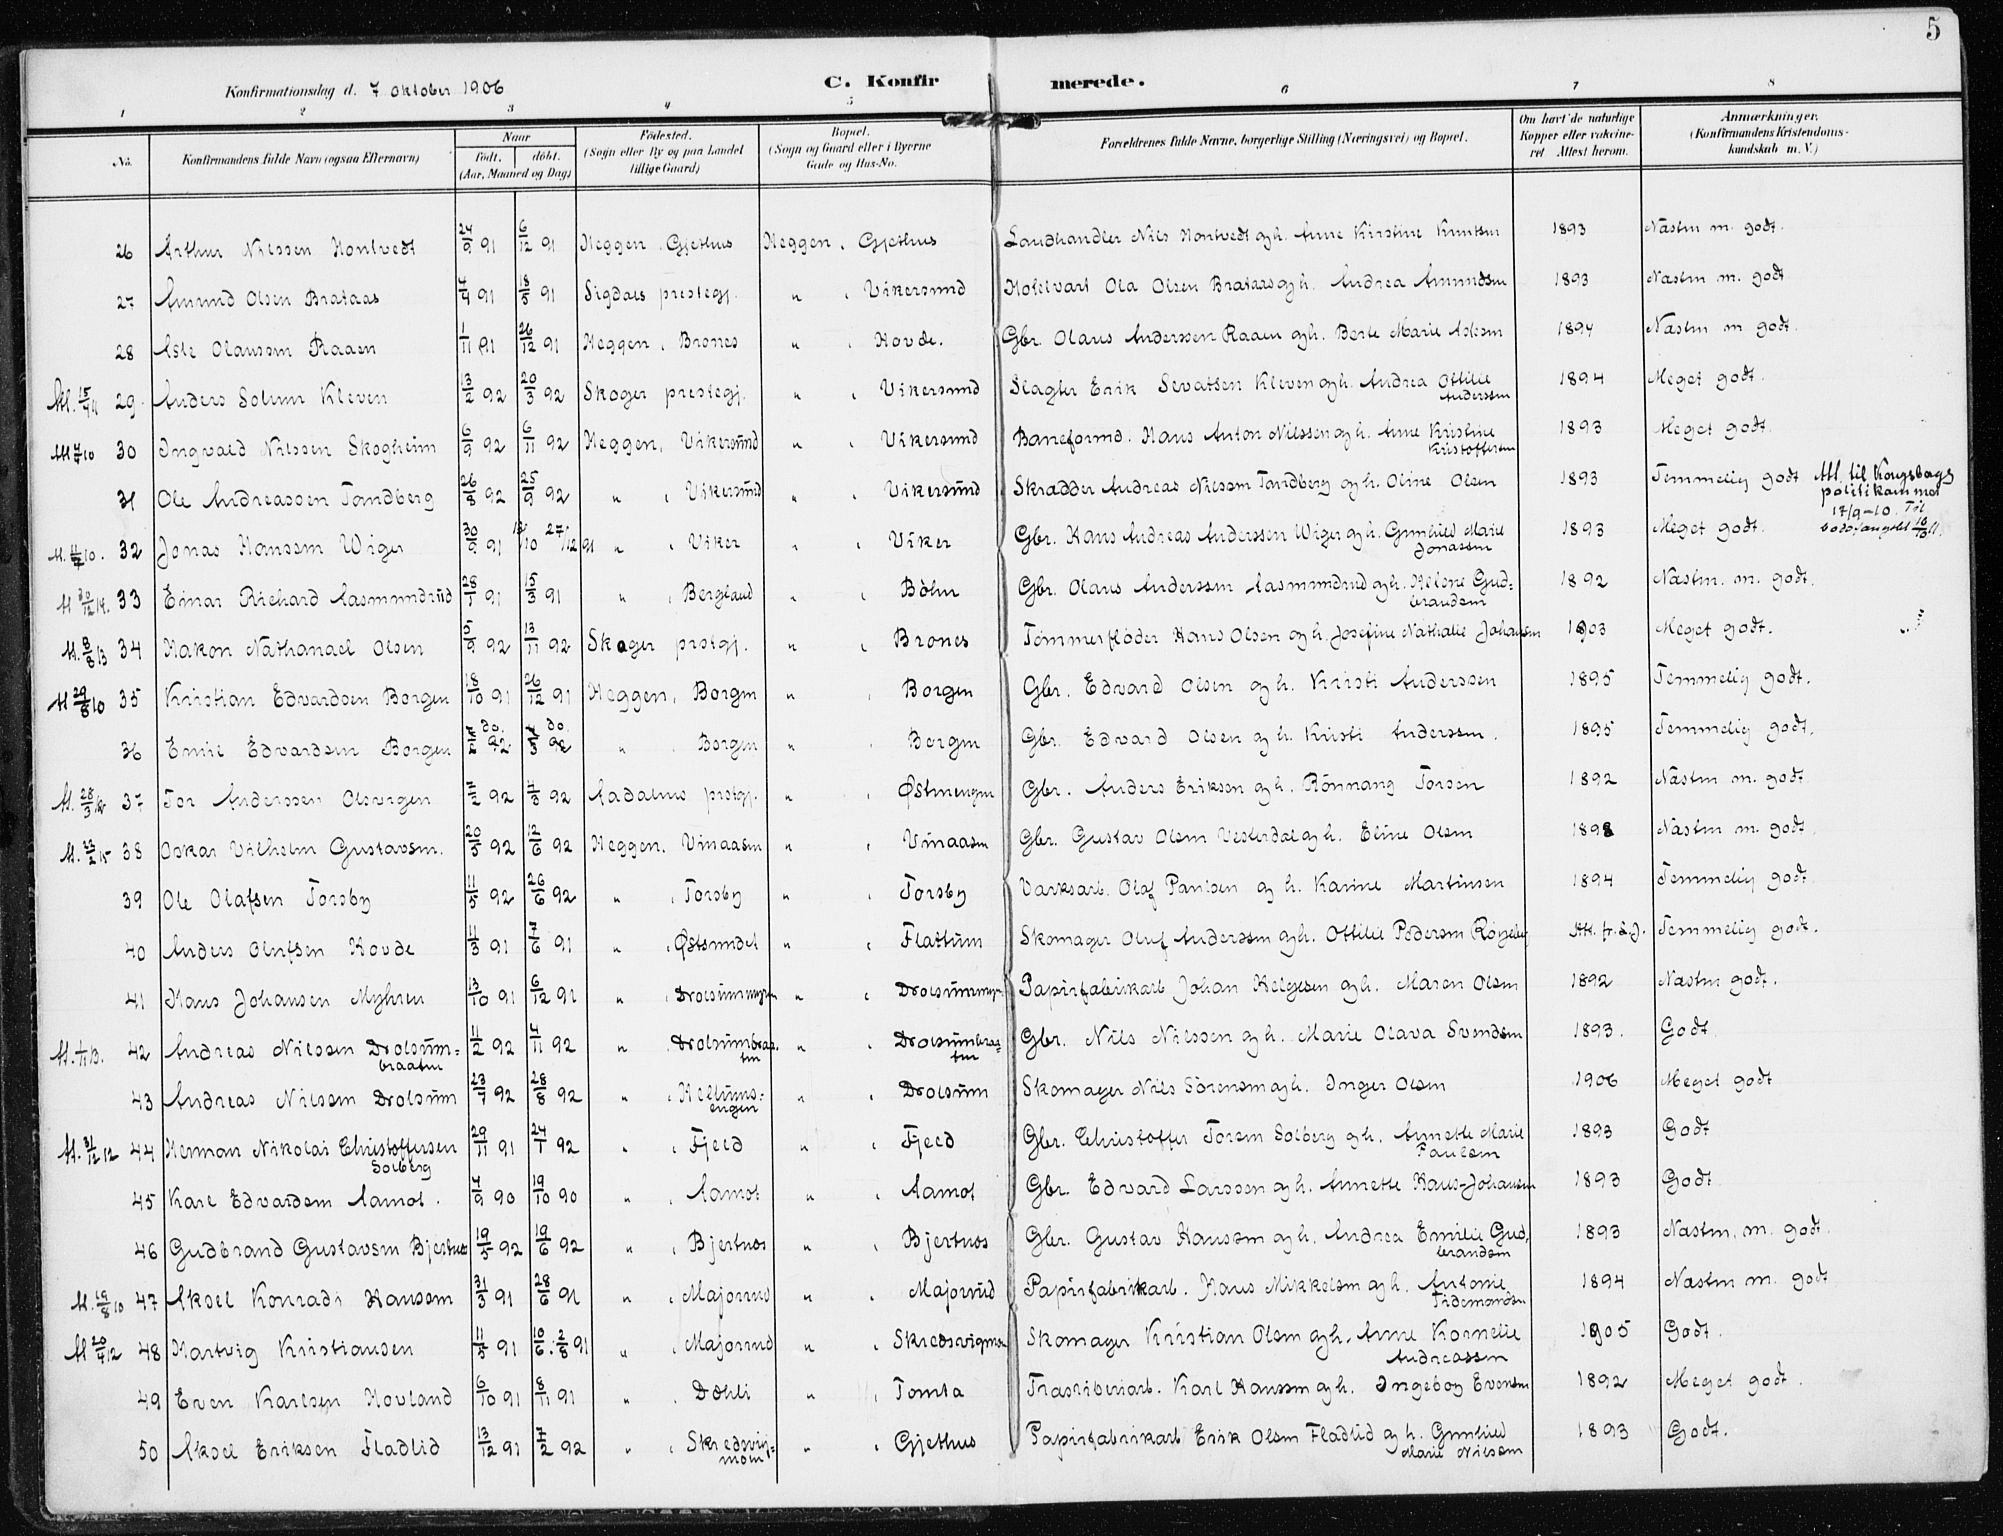 5
Konfirmationsdag d. 7 Oktober 1906 C. Konfirmerede.
1 2 3 4 5 6 7 8
No. Konfirmandens fulde Navn (ogsaa Efternavn) Naar födt. döbt. (Aar, Maaned og Dag) Födested. (Sogn eller By og paa Landet tillige Gaard) Bopæl. (Sogn og Gaard eller i Byerne Gade og Hus-No. Forældrenes fulde Navne, borgerlige Stilling (Næringsvei) og Bopæl. Om havt de naturlige Kopper eller vakvineret Attest herom. Anmærkninger. (Konfirmandens Kristendomskundskab m. V.)
26 Arthur Nilssen Hontvedt 24/9 91 6/12 91 Heggen, Gjethus Heggen, Gjethus Landhandler Nils Hontvedt og h. Anne Kirstine Knutsen 1893 Næstm m. godt.
27 Amund Olsen Brataas 7/4 91 18/5 91 Sigdals prestegj. " , Vikersund Hotelvært Ola Olsen Brataas og h. Andrea Amundsen 1893 Næstm m. godt
28 Asle Olaussen Raaen 1/11 91 26/12 91 Heggen, Brones " , Hovde. Gbr. Olaus Anderssen Raaen og h. Berte Marie Aslesen 1894 Næstm m godt.
Att. 15/4 11 29 Anders Solum Kleven 13/2 92 20/3 92 Skoger prestegj. " , Vikersund Slagter Erik Sevatsen Kleven og h. Andrea Ottilie Anderssen 1894 Meget godt.
Att 7/4 10 30 Ingvald Nilssen Skogheim 6/9 92 6/11 92 Heggen, Vikersund " , Vikersund Baneformd. Hans Anton Nilssen og h. Anne Kristine Kristoffersen 1893 Meget godt.
31 Ole Andreassen Tandberg 26/8 92 25/9 92 " , Vikersund " , Vikersund Skrædder Andreas Nilssen Tandberg og h. Oline Olsen 1893 Temmelig godt Att. til Kongsbergs politikammer 17/9-10. Til
32 Jonas Hanssen Wiger 30/9 91 27/12 91 " , Viker " , Viker Gbr. Hans Andreas Anderssen Wiger og h. Gunhild Marie Jonassen 1893 Meget godt.
33 Einar Richard Aasmundrud 28/1 91 15/3 91 " , Bergland " , Böhn Gbr. Olaus Anderssen Aasmundrud og h. Helene Gudbrandsen 1892 Næstm. m. godt.
At. 8/8 13 34 Hakon Nathanael Olsen 5/9 92 13/11 92 Skoger prstgj. " , Brones Tömmerflöder Hans Olsen og h. Josefine Nathalie Johansen 1903 Meget godt.
At 29/8 10 35 Kristian Edvardsen Borgen 18/10 91 26/12 91 Heggen, Borgen " , Borgen Gbr. Edvard Olsen og h. Kristi Anderssen 1895 Temmelig godt.
36 Emil Edvardsen Borgen do. do. " , Borgen " , Borgen Gbr. Edvard Olsen og h. Kristi Anderssen. 1895 Temmelig godt.
37 Tor Anderssen Olsvigen 92 92 Aadalens prstgj. " , Østmengen Gbr. Anders Eriksen og h. Rönnang Torsen 1892 Næstm m. godt
38 Oskar Vilhelm Gustavsen. 20/5 92 12/6 92 Heggen, Vinaasen " , Vinaasen Gbr. Gustav Olsen Vesterdal og h. Eline Olsen Næstm m. godt.
39 Ole Olafsen Torsby 11/5 92 26/6 92 " , Torsby " , Torsby Værksarb. Olaf Paulsen og h. Karine Martinsen 1894 Temmelig godt.
40 Anders Olufsen Hovde 11/3 91 7/6 91 " , Østsundet " , Flattum Skomager Oluf Anderssen og h. Ottilie Pedersen Temmelig godt.
41 Hans Johansen Myhren 13/10 91 6/12 91 " , Drolsummyren " , Drolsummyren Papirfabrikarb Johan Helgesen og h. Maren Olsen 1892 Næstm godt.
At. 1/11 13. 42 Andreas Nilssen Drolsumbraaten 11/2 92 4/11 92 " , Drolsumbraaten " , Drolsumbraaten Gbr. Nils Nilssen og h. Marie Olava Svendsen 1893. Godt.
43 Andreas Nilssen Drolsum 23/7 92 28/8 92 " , Hellumsengen " , Drolsum Skomager Nils Sörensen og h. Inger Olsen 1906 Meget godt
At. 31/12 12 44 Herman Nikolai Christoffersen Solberg 29/11 91 24/1 92 " , Fjeld " , Fjeld Gbr. Christoffer Torsen Solberg og h. Annette Marie Paulsen 1893 Godt
45 Karl Edvardsen Aamot. 4/9 90 19/10 90 " , Aamot " , Aamot Gbr. Edvard Larssen og h. Annette Hans-Johansen 1893 Godt
46 Gudbrand Gustavsen Bjertnæs 19/5 92 19/6 92 " , Bjertnæs " , Bjertnæs Gbr. Gustav Hanssen og h. Andrea Emilie Gudbrandsen 1893 Næstm. m. godt.
At. 19/8 10 47 Aksel Konrad Hanssen 31/3 91 28/6 91 " , Majorud " , Majorud Papirfabrikarb. Hans Mikkelsen og h. Antonie Tidemandsen 1894 Næstm m. godt
At 20/4 12 48 Hartvig Kristiansen 11/5 91 10/6. 2/8 91 " , Majorud " , Skredsvigmoen Skomager Kristian Olsen og h. Anne Kornelie Andreassen 1905 Godt.
49 Even Karlsen Hovland 6/10 91 8/11 91 " , Døhli " , Tomta Træsliberiarb. Karl Hanssen og h. Ingeborg Evensen 1892 Meget godt.
50 Aksel Eriksen Fladlid 13/12 91 7/2 92 " , Skredsvigmoen " , Gjethus Papirfabrikarb Erik Olsen Fladlid og h. Gunhild Marie Nilssen 1893 Godt.